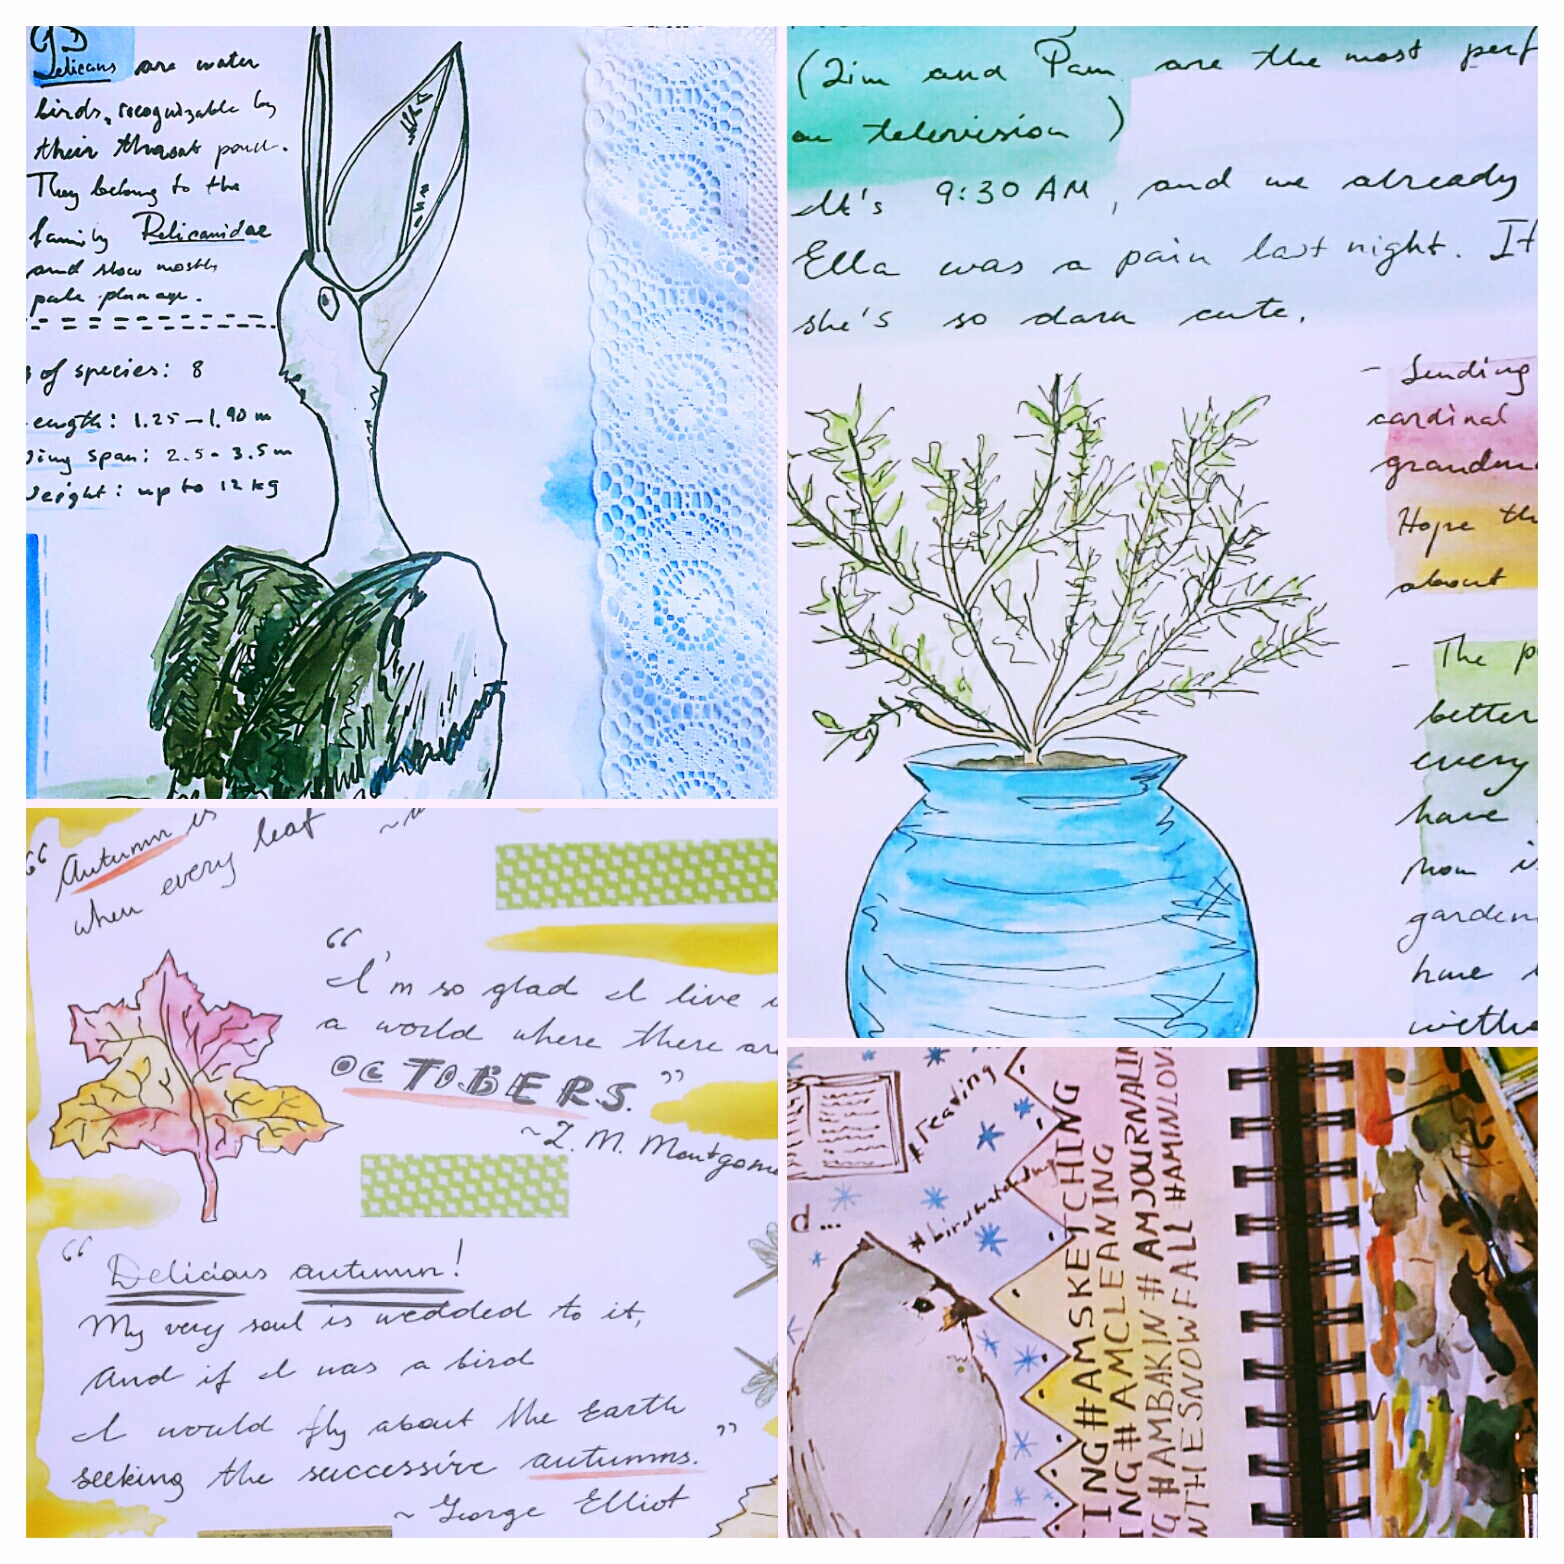 Pelicans are water
birds, recognizable by
their throat pouch.
They belong to the
family Pelicanidae
and show mostly
pale plumage.
of species: 8
ength: 1.25-1.90 m
ing span: 2.5-3.5m
eight: up to 12 kg
(Jim and Pam are the most perf
on television)
It's 9:30 AM, and we already
Ella was a pain last night. It
she's so darn cute.
- Sending
cardinal
grandm
Hope th
about
- The p
better
every
have
now i
garden
have
witho
“Autumn is
when every leaf
“I'm so glad I live i
a world where there are
OCTOBERS.”
~L. M. Montgome
“Delicious autumn!
My very soul is wedded to it,
And if I was a bird
I would fly about the Earth
seeking the successive autumns.”
~ George Elliot
#reading
#birdwatching
d...
ING#AMSKETCHING
ING#AMCLEANING
G#AMBAKIN#AMJOURNALIN
NTHESNOWFALL#AMINLOV